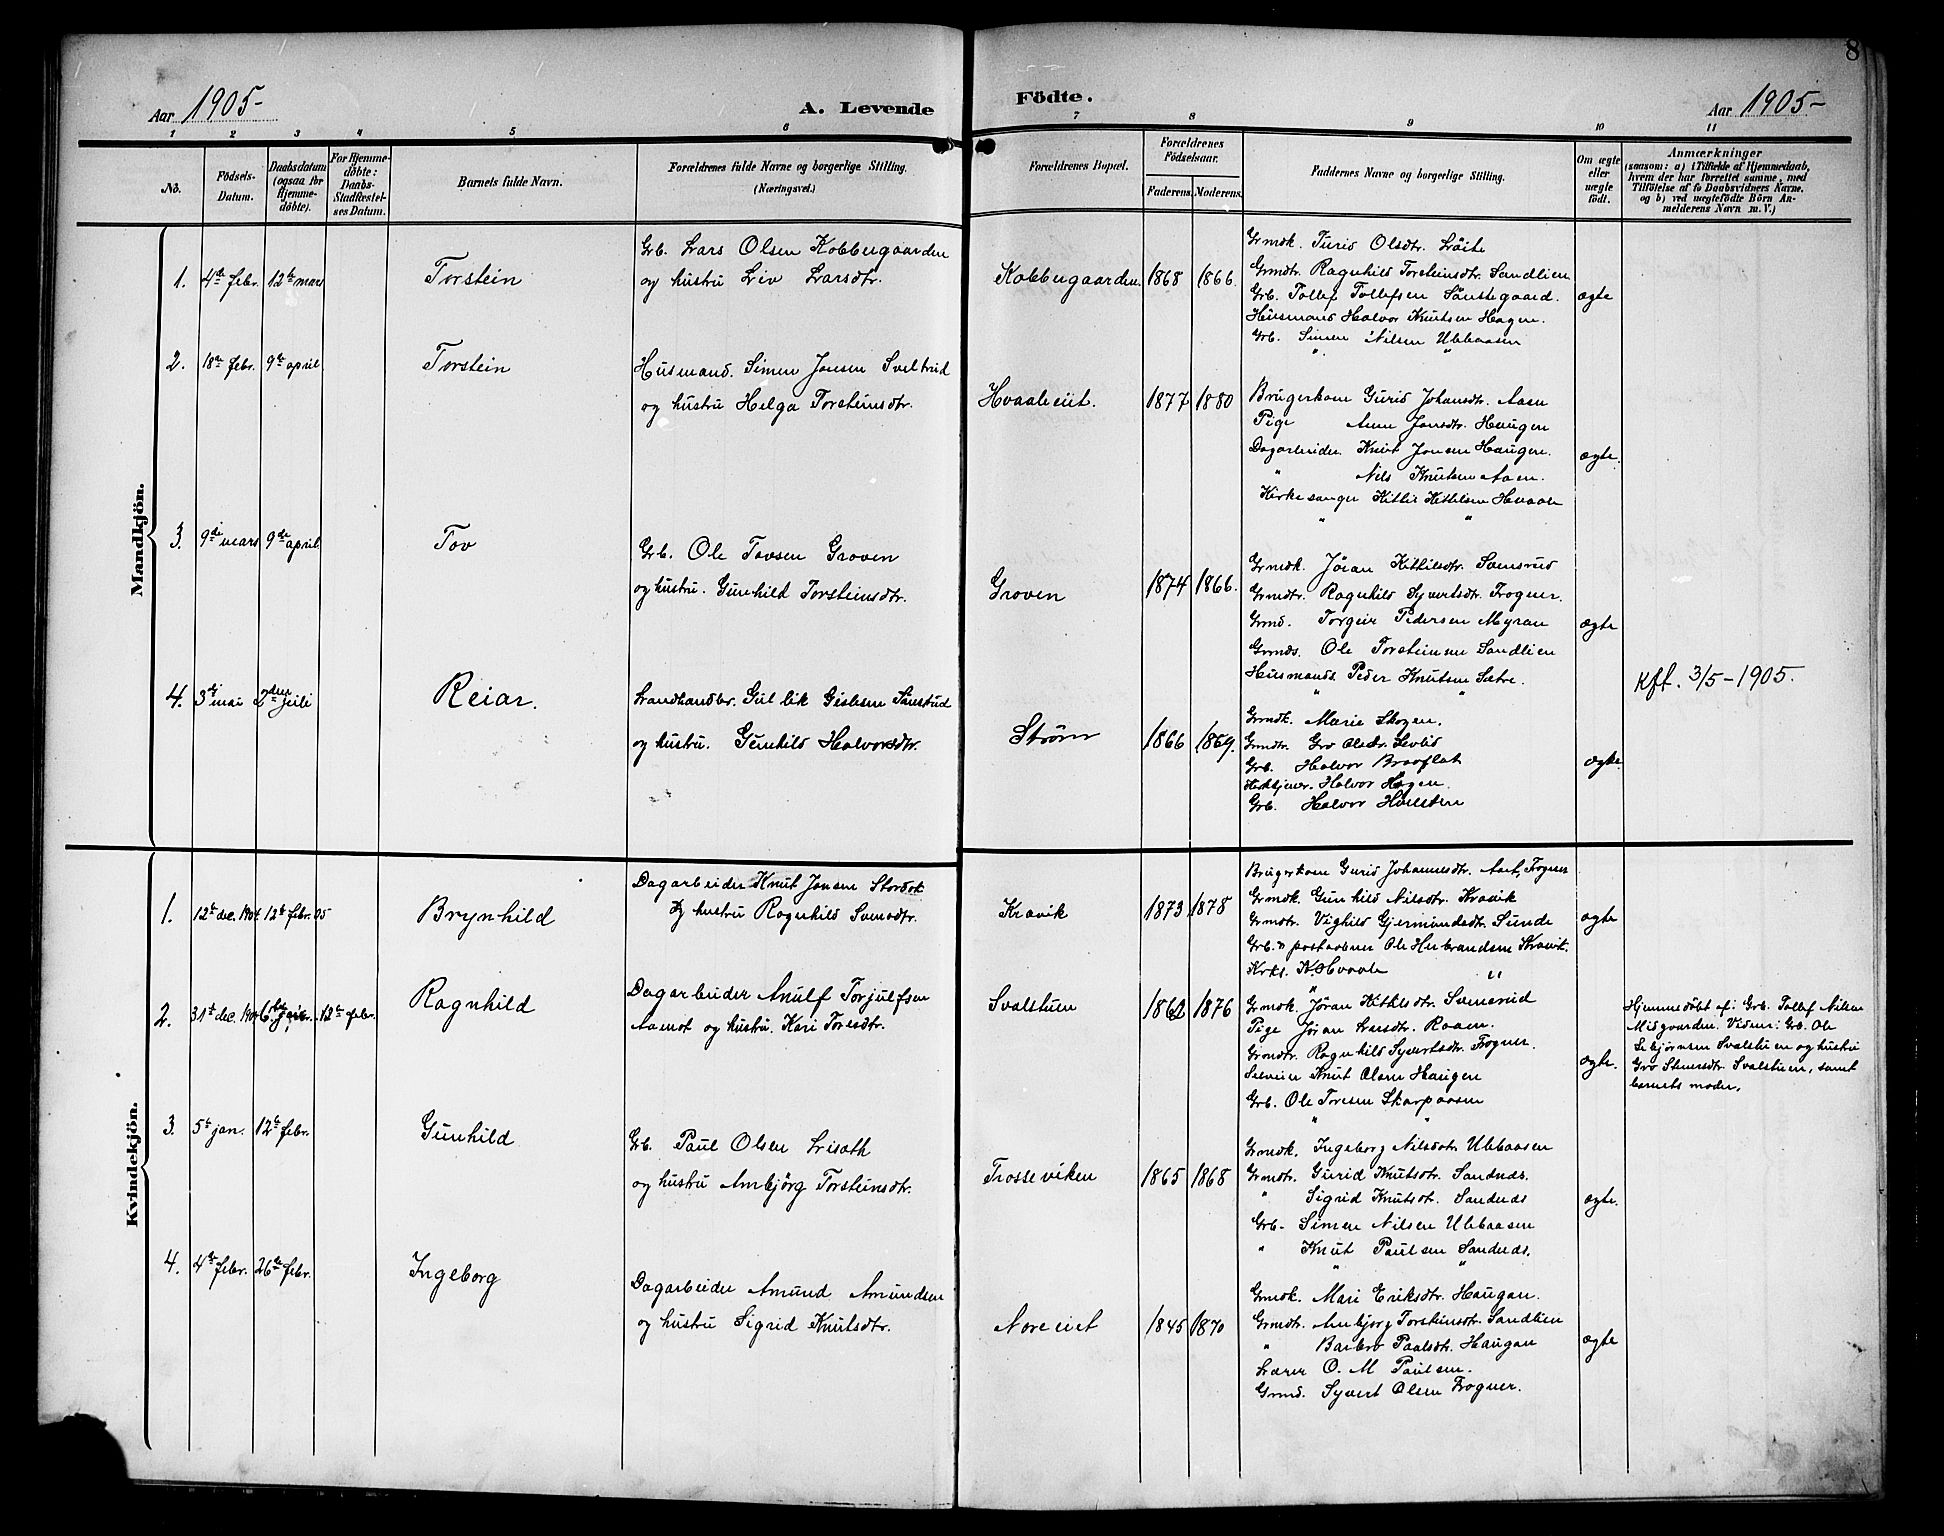 8
Aar 1905-
A. Levende
Födte.
Aar 1905-
1 2 3 4 5 6 7 8 9 10 11
No.
Födsels-
Datum.
Daabsdatum
(ogsaa for
Hjemme-
döbte).
For Hjemme-
döbte:
Daabs-
Stadfæstel-
ses Datum.
Barnets fulde Navn.
Forældrenes fulde Navne og borgerlige Stilling.
(Næringsvei.)
Forældrenes Bopæl.
Forældrenes
Födselsaar.
Faderens. Moderens.
Faddernes Navne og borgerlige Stilling.
Om ægte
eller
uægte
født.
Anmærkninger
(saasom: a) i Tilfælde af Hjemmedaab,
hvem der har forrettet samme, med
Tilföielse af to Daabsvidners Navne.
og b) ved uægtefödte Börn An-
melderens Navn m. V.)
Mandkjön.
1. 4de febr. 12te mars
Torstein
Grb. Lars Olsen Kobbergaarden
og hustru Liv Larsdtr.
Kobbergaarden. 1868 1866.
Grmdk. Turid Olsdtr. Löite
Grmdtr. Ragnhild Torsteinsdtr. Sandlien
Grb. Tollef Tollefsen Sönstegaard.
Husmand Halvor Knutsen Hagen.
Grb. Simen Nilsen Ulebaasen
ægte
2. 18de febr. 9de april
Torstein
Husmand. Simen Jonsen Sveltrud
og hustru Helga Torsteinsdtr.
Hvaaleeiet. 1877 1880
Brugerkone Gurid Johansdtr. Aasen
Pige Anne Jonsdtr. Haugen
Dagarbeider Knut Jonsen Haugen.
" Nils Knutsen Aasen.
Kirkesanger Kittil Kittelsen Hvaale
ægte.
3. 9de mars 9de april.
Tov
Grb. Ole Tovsen Groven
og hustru. Gunhild Torsteinsdtr.
Groven 1874 1866.
Grmdk. Jöran Kittilsdtr. Svensrud
Grmdtr. Ragnhild Syvertsdtr. Frogner.
Grmd. Torgeir Pedersen Myran
Grmds. Ole Torsteinsen Sandlien
Husmands. Peder Knutsen Sætre.
ægte
4. 3de mai 2den juli
Reiar.
Landhandler. Gullik Gislesen Sönstrud
og hustru. Gunhild Halvorsdtr.
Ström 1866 1869.
Grmdk. Marie Skogen.
Grmdtr. Gro Olsdtr. Sevlid
Grb. Halvor Braaflat
Kirketjener. Halvor Hagen.
Grb. Halvor
ægte.
Kft. 3/5-1905.
Kvindekjön.
1. 12te dec. 1904 12te febr. 05
Brynhild
Dagarbeider Knut Jonsen Stordok
og hustru Ragnhild Svensdtr.
Kravik 1873 1878
Brugerkone Gurid Johannesdtr. Aart, Frogner
Grmdk. Gunhild Nilsdtr. Kravik
Grmdtr. Vighild Gjermundsdtr. Sunde
Grb. & postaabner Ole Herbrandsen Kravik.
Krks. K. Hvaale
ægte
2. 31te dec. 1904 6te jan. 12te febr.
Ragnhild
Dagarbeider Anulf Torjulfsen
Aamot og hustru. Kari Toresdtr.
Svalstuen 1862 1876
Grmdk. Jöran Kittilsdtr. Svensrud
Pige Jöran Larsdtr. Raaen.
Grmdtr. Ragnhild Syvertsdtr. Frogner.
Selveier Knut Olsen Haugen
Grb. Ole Toresen Skarpaasen
ægte.
Hjemmedöbt af: Grb. Tollef Nilsen
Midgaarden. Vidner: Grb. Ole
Sebjörnsen Svalstuen og hustru
Gro Stenersdtr. Svalstuen, samt
barnets moder.
3. 5te jan. 12te febr.
Gunhild
Grb. Paul Olsen Liseth
og hustru Ambjörg Torsteinsdtr.
Trosseviken 1865 1868
Grmdk. Ingeborg Nilsdtr. Ulebaasen
Grmdtr. Gurid Knutsdtr. Sandnes.
" Sigrid Knutsdtr. Sandnes
Grb. Simen Nilsen Ulebaasen
" Knut Paulsen Sandnes.
ægte.
4. 4de febr. 26de febr.
Ingeborg
Dagarbeider Amund Amundsen
og hustru Sigrid Knutsdtr.
Noreeiet 1845 1870
Grmdk. Mari Eriksdtr. Haugan.
Grmdtr. Ambjorg Torsteinsdtr. Sandlien
" Barbro Paalsdtr. Haugan
Lærer O. M Paulsen.
Grmd. Syvert Olsen Frogner.
ægte